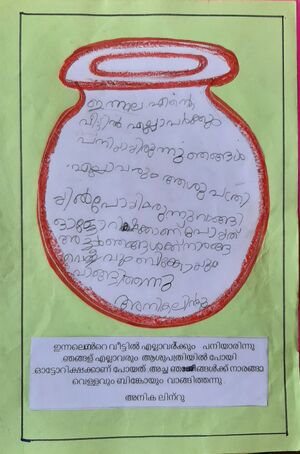 ഇന്നലെ എന്റെ
വീട്ടിൽ എല്ലാവർക്കും
പനിയായിരുന്നു ഞങ്ങൾ
എല്ലാവരും ആശുപത്രി
യിൽ പോയി
ഓട്ടോറിക്ഷക്കാണ് പോയത്
അച്ഛ ഞങ്ങൾക്ക് നാരങ്ങ
വെള്ളവും ബിങ്കോയും
വാങ്ങിത്തന്നു
അനിക ലിൻറു
ഇന്നലെ എൻറെ വീട്ടിൽ എല്ലാവർക്കും പനിയാരിന്നു
ഞങ്ങള് എല്ലാവരും ആശുപത്രിയിൽ പോയി
ഓട്ടോറിക്ഷക്കാണ് പോയത് അച്ച ഞങ്ങൾക്ക് നാരങ്ങാ
വെള്ളവും ബിങ്കോയും വാങ്ങിത്തന്നു
അനിക ലിന്റു